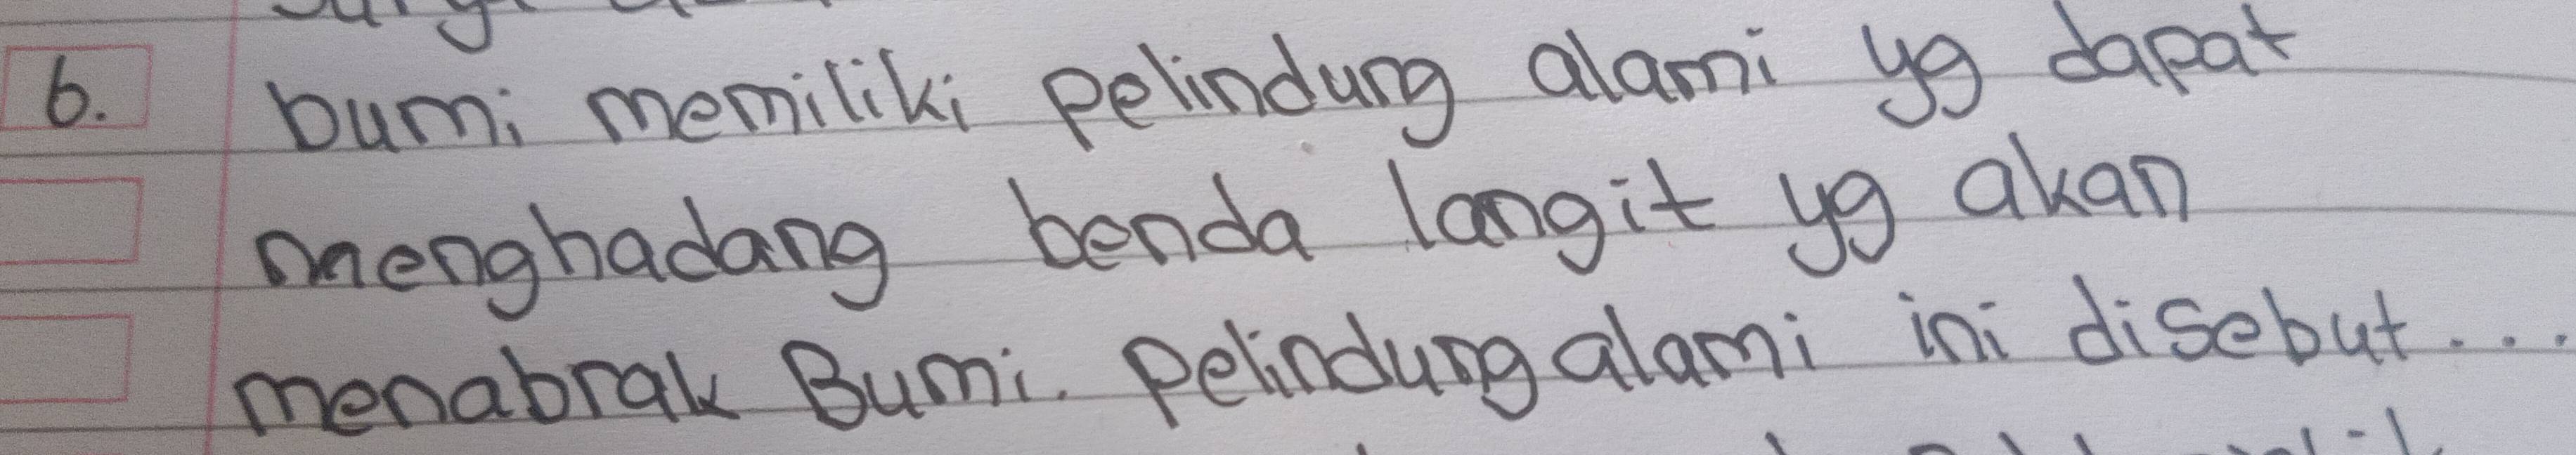 6. bumi memiliki pelindung alami yg dapat
menghadang benda langit yg akan
menabrak Bumi. Pelindung alami ini disebut...